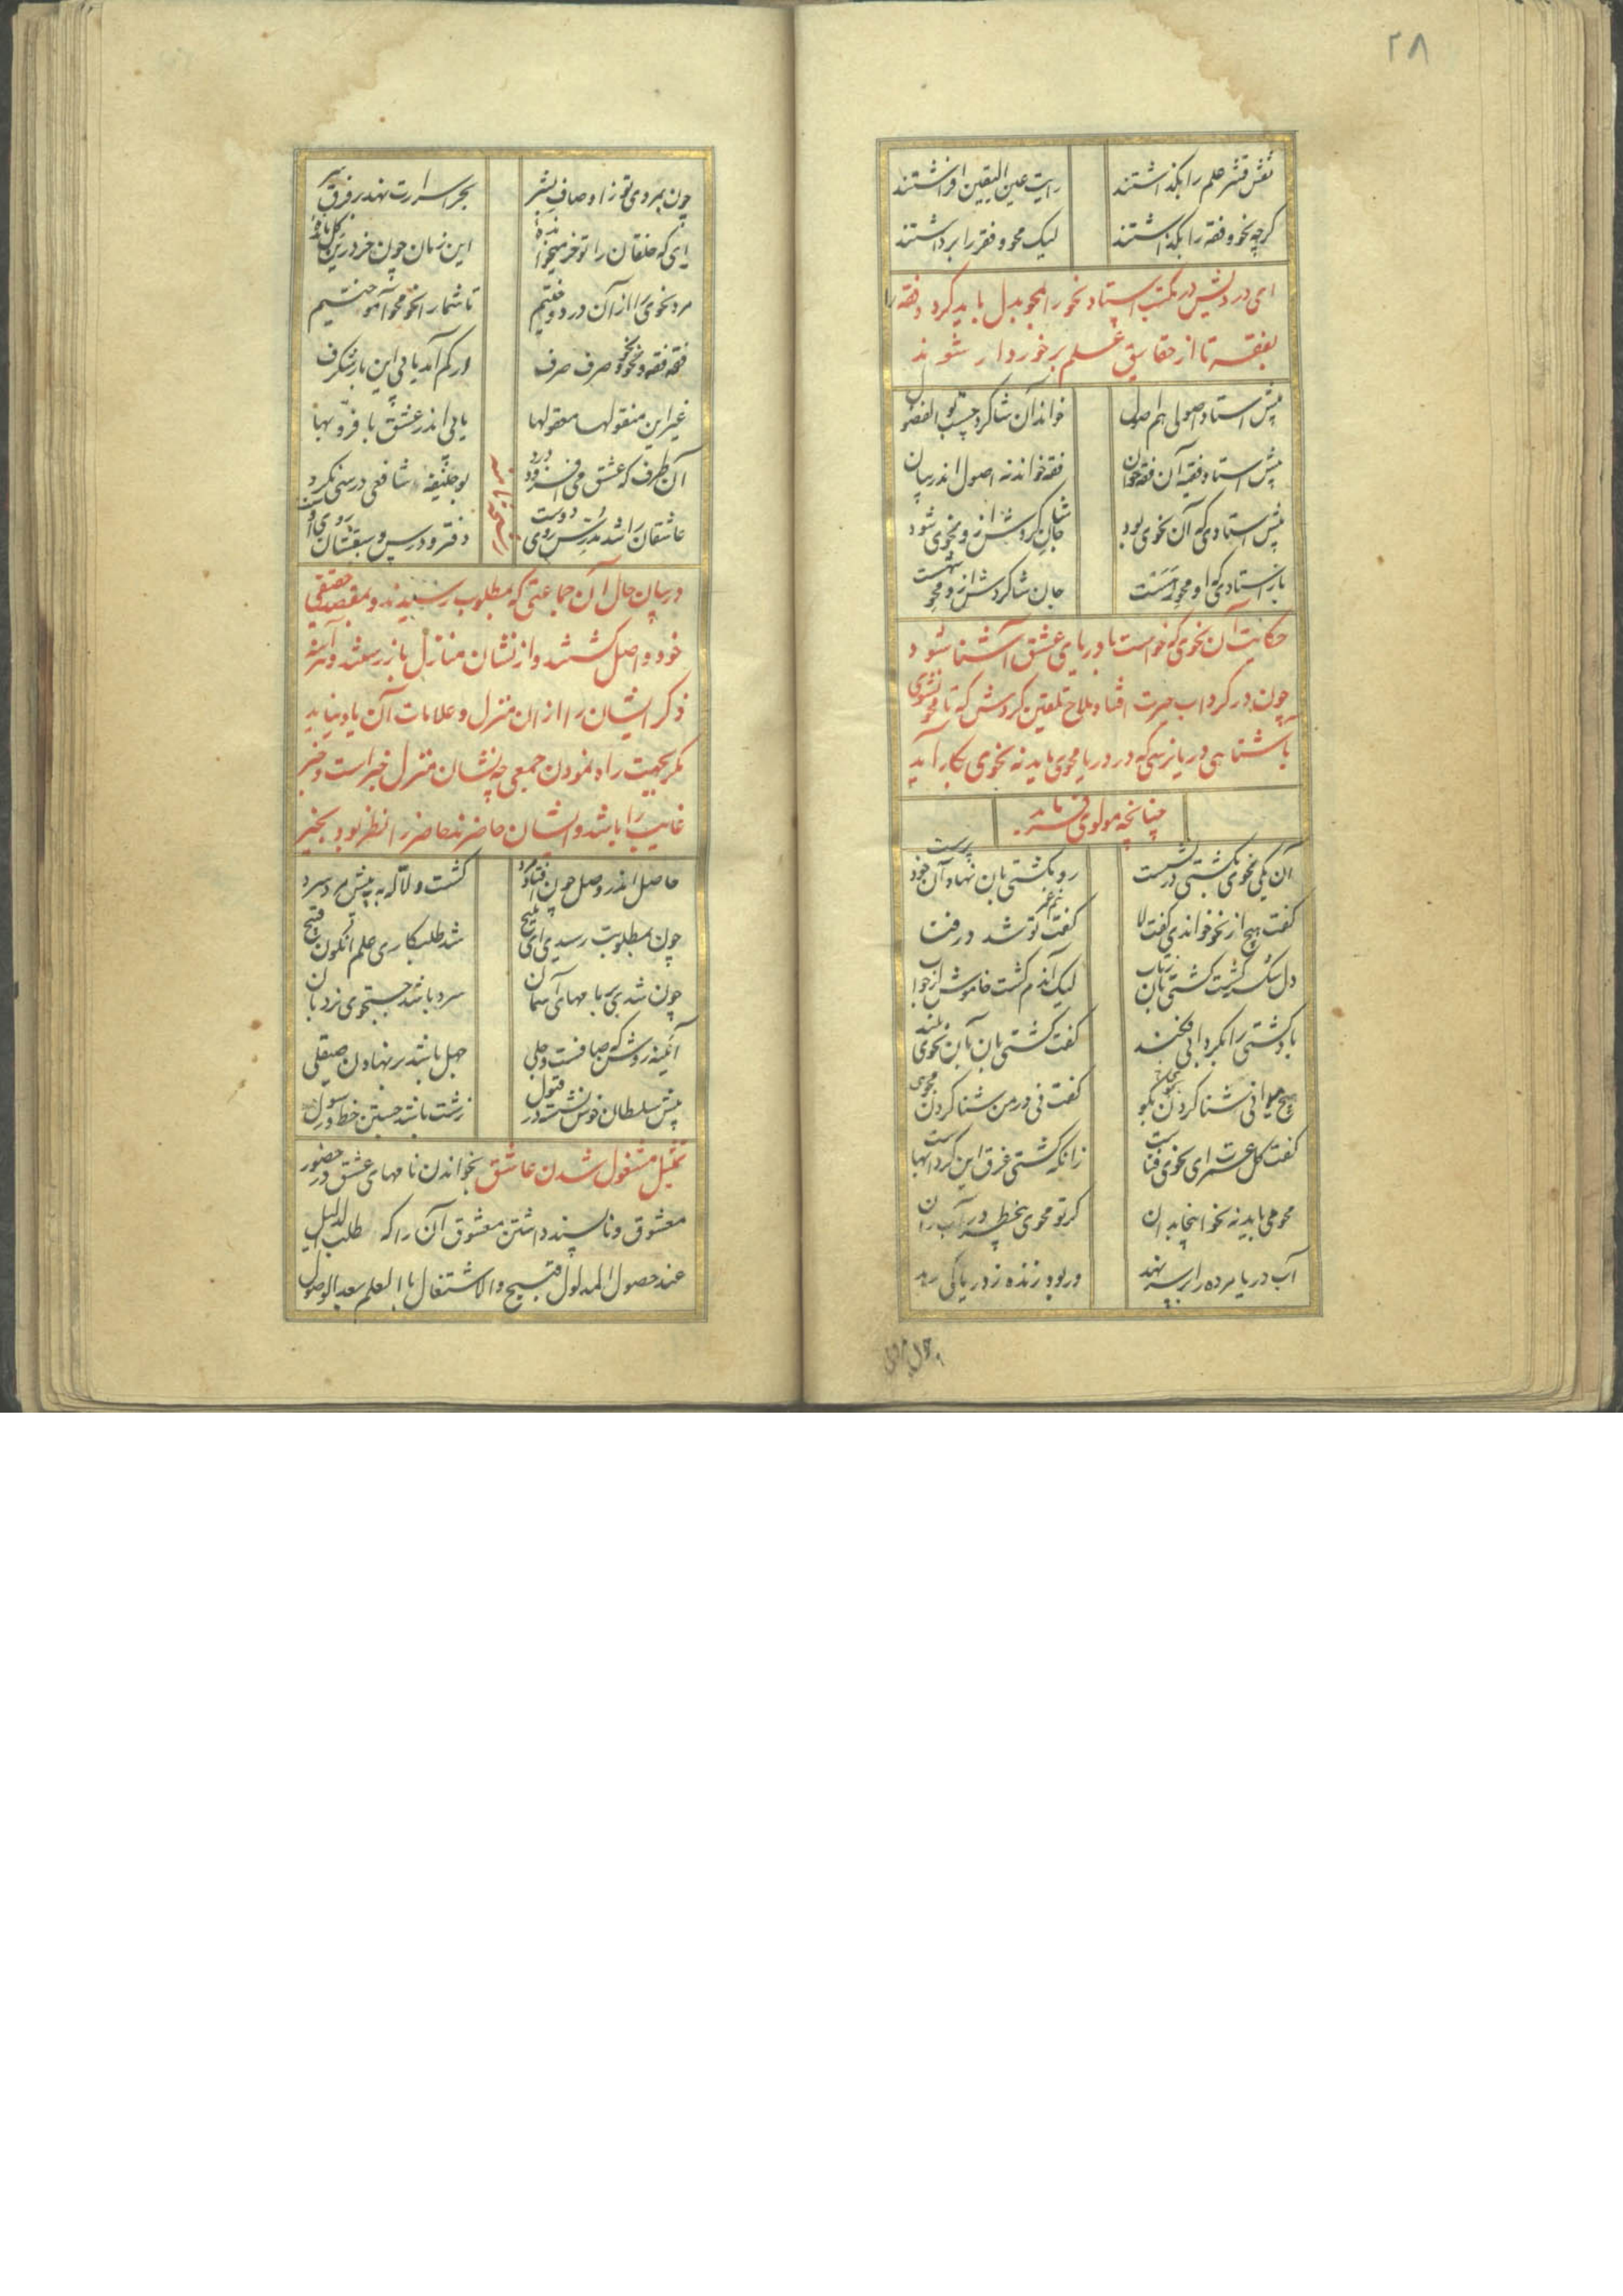 ۲۸
نقش قشر علم را بگذاشتند رایت عین الیقین افراشتند
گرچه نحو و فقه را بگذاشتند لیک محو و فقر را برداشتند
ای درویش در مکتب استاد نحو را بمحو بدل باید کرد و فقه را
بفقر تا از حقایق علم برخوردار شوند
پیش استاد اصولی هم اصول خواند آن شاگرد چست بو الفضول
پیش استاد فقیه آن فقه خوان فقه خواند نه اصول اندر بیان
پیش استادی که آن نحوی بود جان شاگردش ازو نحوی شود
باز استادی که او محو رهست جان شاگردش ازو محو شهست
حکایت آن نحوی که خواست با دریای عشق آشنا شود
چون در گرداب حیرت افتاد ملاح تلقین کردش که تا محو نشوی
باشنا هی دریا نرسی که در دریا محوی باید نه نحوی بکار آید
چنانچه مولوی فرماید
آن یکی نحوی بکشتی در نشست رو بکشتی بان نهاد آن خود پرست
گفت هیچ از نحو خواندی گفت لا گفت نیم عمر تو شد در فنا
دل شکسته گشت کشتی بان ز تاب لیک آندم گشت خاموش از جواب
باد کشتی را بگردابی فکند گفت کشتی بان بآن نحوی بلند
هیچ دانی آشنا کردن بگو گفت نی از من شنا کردن مجوی
گفت کل عمرت ای نحوی فناست زانکه کشتی غرق این گردابهاست
محو می باید نه نحو اینجا بدان گر تو محوی بیخطر در آب ران
آب دریا مرده را بر سر نهد ور بود زنده ز دریا کی رهد
چون بمردی
چون بمردی تو ز اوصاف بشر بحر اسرارت نهد بر فرق سر
ای که خلقان را تو خر میخوانده این زمان چون خر درین گل مانده
مرد نحوی را از آن در دوختیم تا شما را نحو محو آموختیم
فقه فقه و نحو نحو و صرف صرف در کم آمد یابی این یار شگرف
غیر این منقولها معقولها یابی اندر عشق با فر و بها
آن طرف که عشق می افزود درد بو حنیفه شافعی درسی نکرد
عاشقان را شد مدرس روی دوست دفتر و درس و سبقشان روی اوست
در بیان حال آن جماعتی که بمطلوب رسیدند و بمقصد حقیقی
خود واصل گشتند و از نشان منازل باز رستند و آینه
ذکر ایشان را از ان منزل و علامات آن یاد نیاید
مگر بجهت راه نمودن جمعی چه نشان منزل خبر است و خبر
غایب را باشد و ایشان حاضرند حاضر را نظر بود بخبر
حاصل اندر وصل چون افتاد مرد گشت دلاله به پیش مرد سرد
چون بمطلوبت رسیدی ای ملیح شد طلبکاری علم اکنون قبیح
چون شدی بر بامهای آسمان سرد باشد جستجوی نردبان
آینه روشن که صافست و جلی جهل باشد بر نهادن صیقلی
پیش سلطان خوش نشسته در قبول زشت باشد جستن خط و رسول
تمثیل مشغول شدن عاشق بخواندن نامهای عشق در حضور
معشوق و ناپسند داشتن معشوق آن را که طلب الدلیل
عند حصول المدلول قبیح و الاشتغال بالعلم بعد الوصول